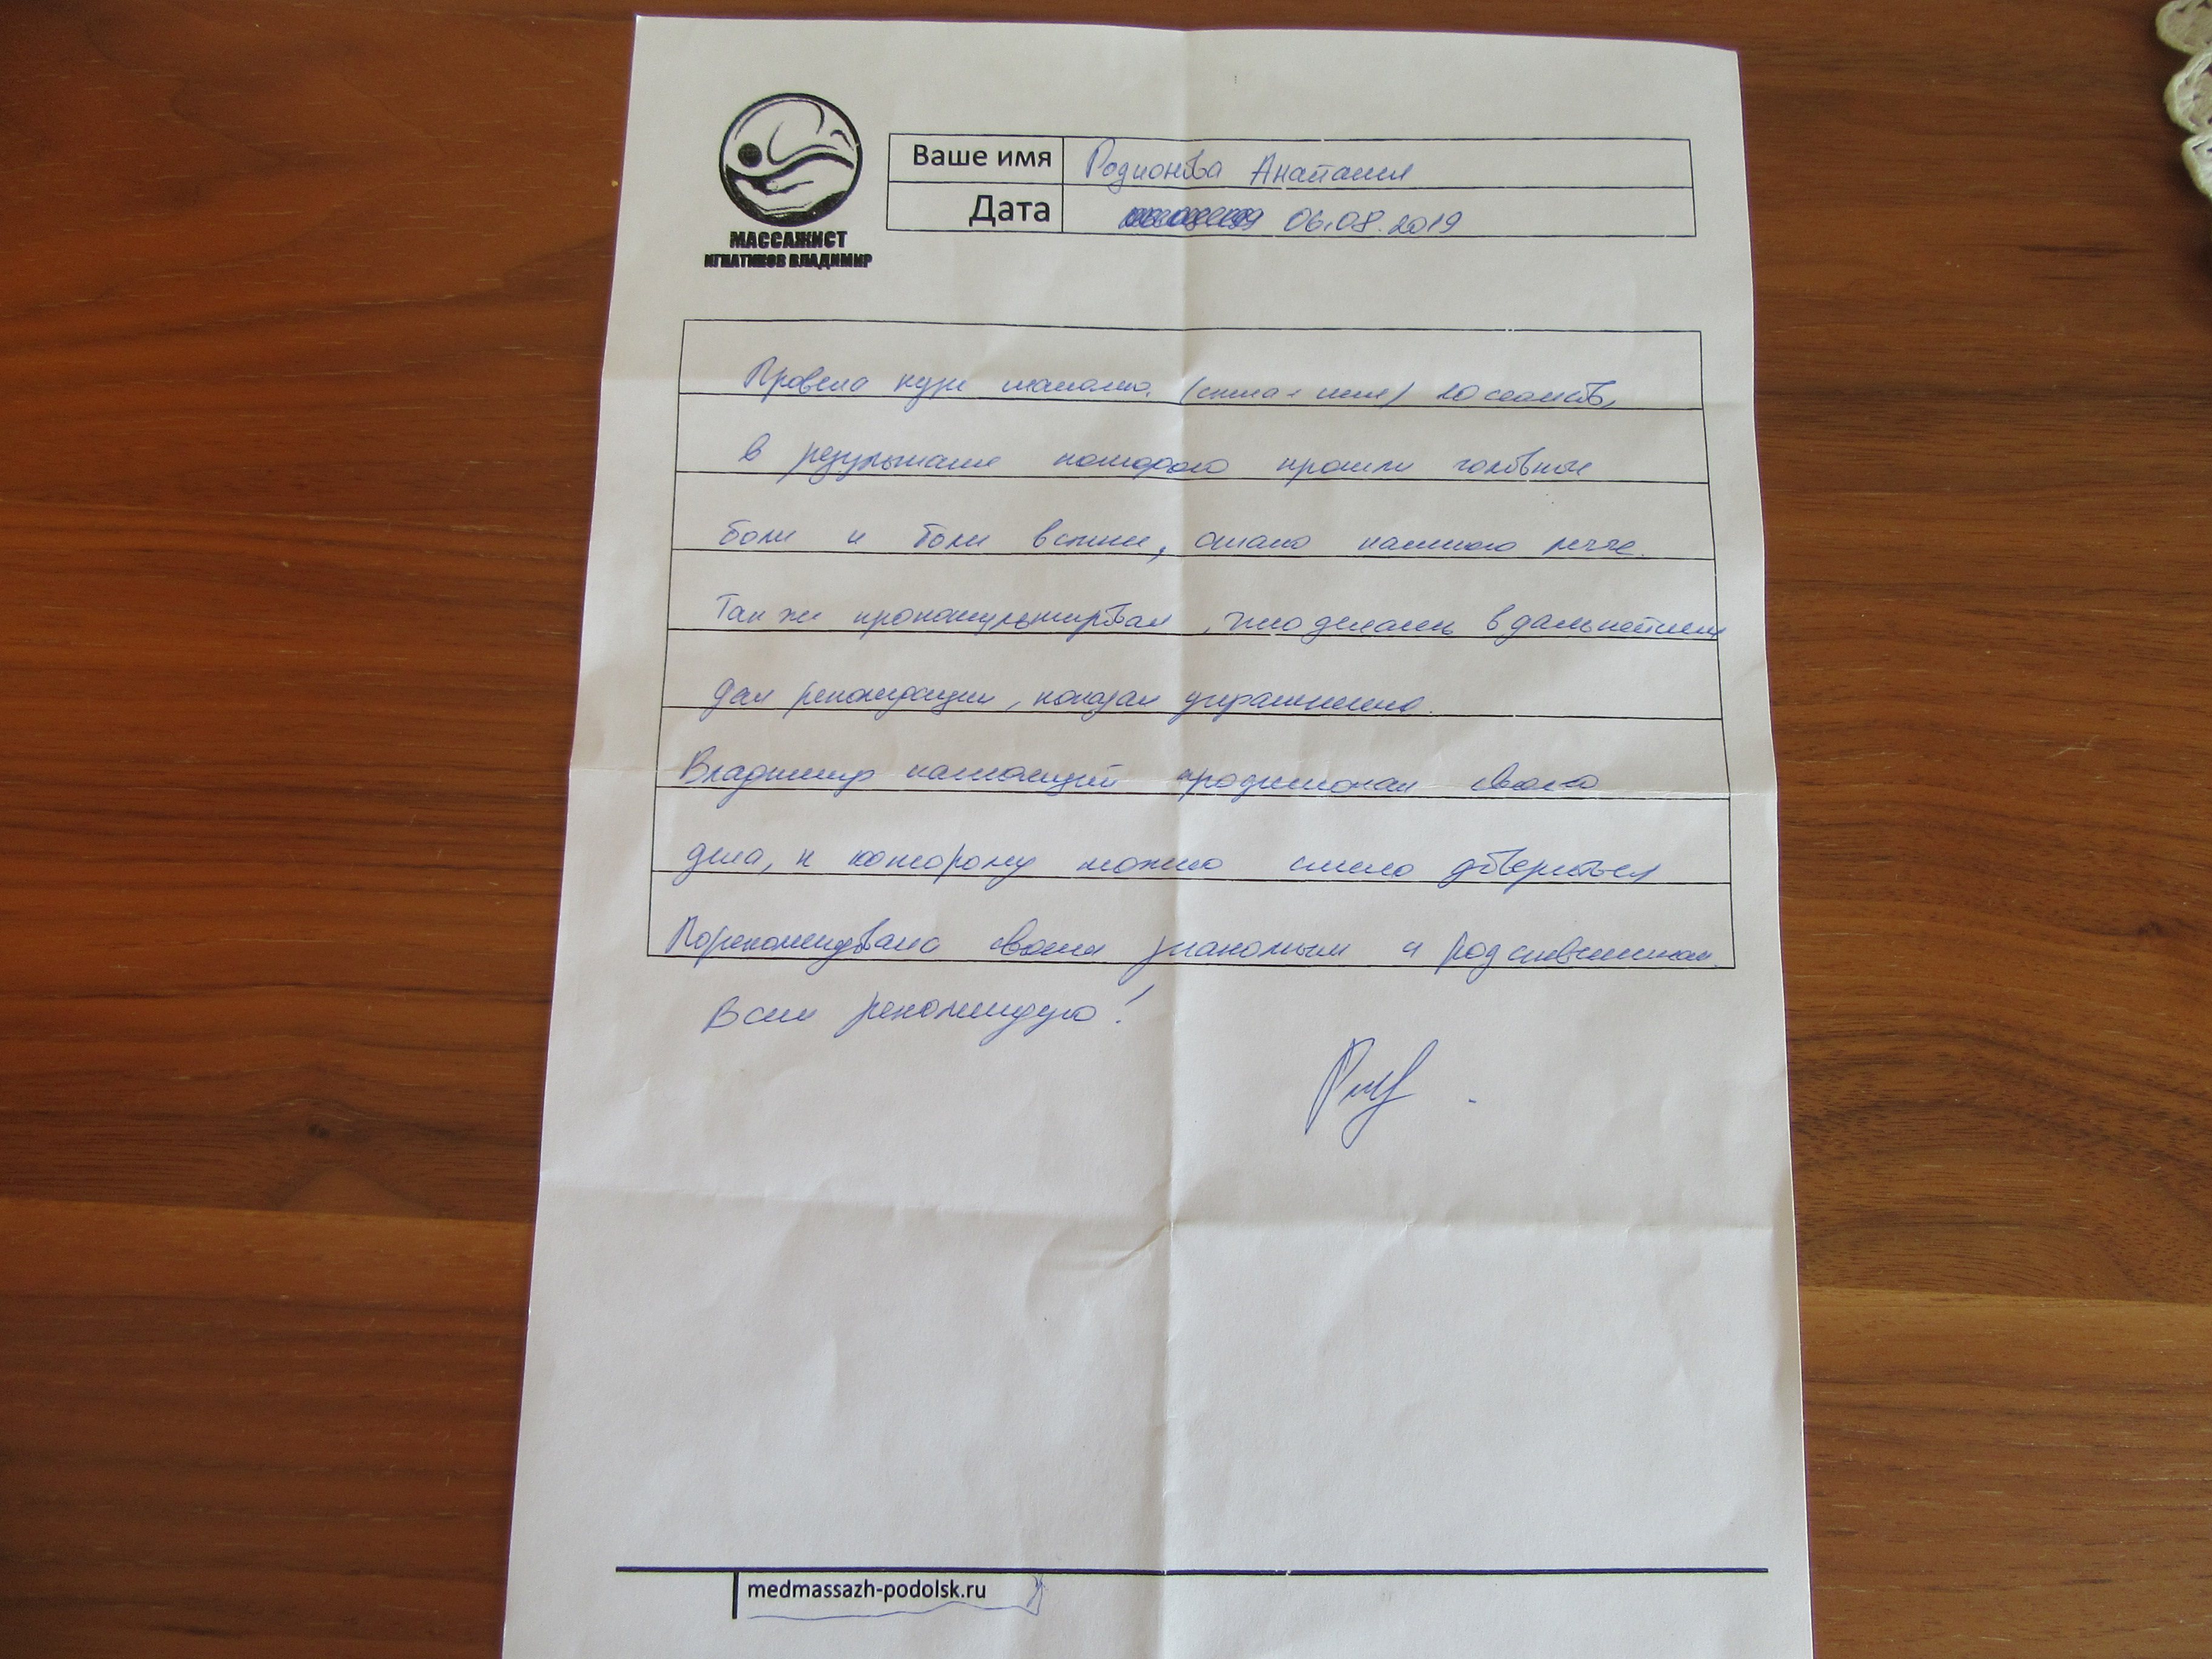 МАССАЖИСТ
ИГНАТИКОВ ВЛАДИМИР
Ваше имя Родионова Анастасия
Дата 06.08.2019
Провела курс массажа. (спина + шея) 10 сеансов,
в результате которого прошли головные
боли и боли в спине, стало намного легче.
Так же проконсультировал, что делать в дальнейшем
дал рекомендации, показал упражнения.
Владимир настоящий профессионал своего
дела, к которому можно смело довериться
Порекомендовала своим знакомым и родственникам.
Всем рекомендую!
medmassazh-podolsk.ru